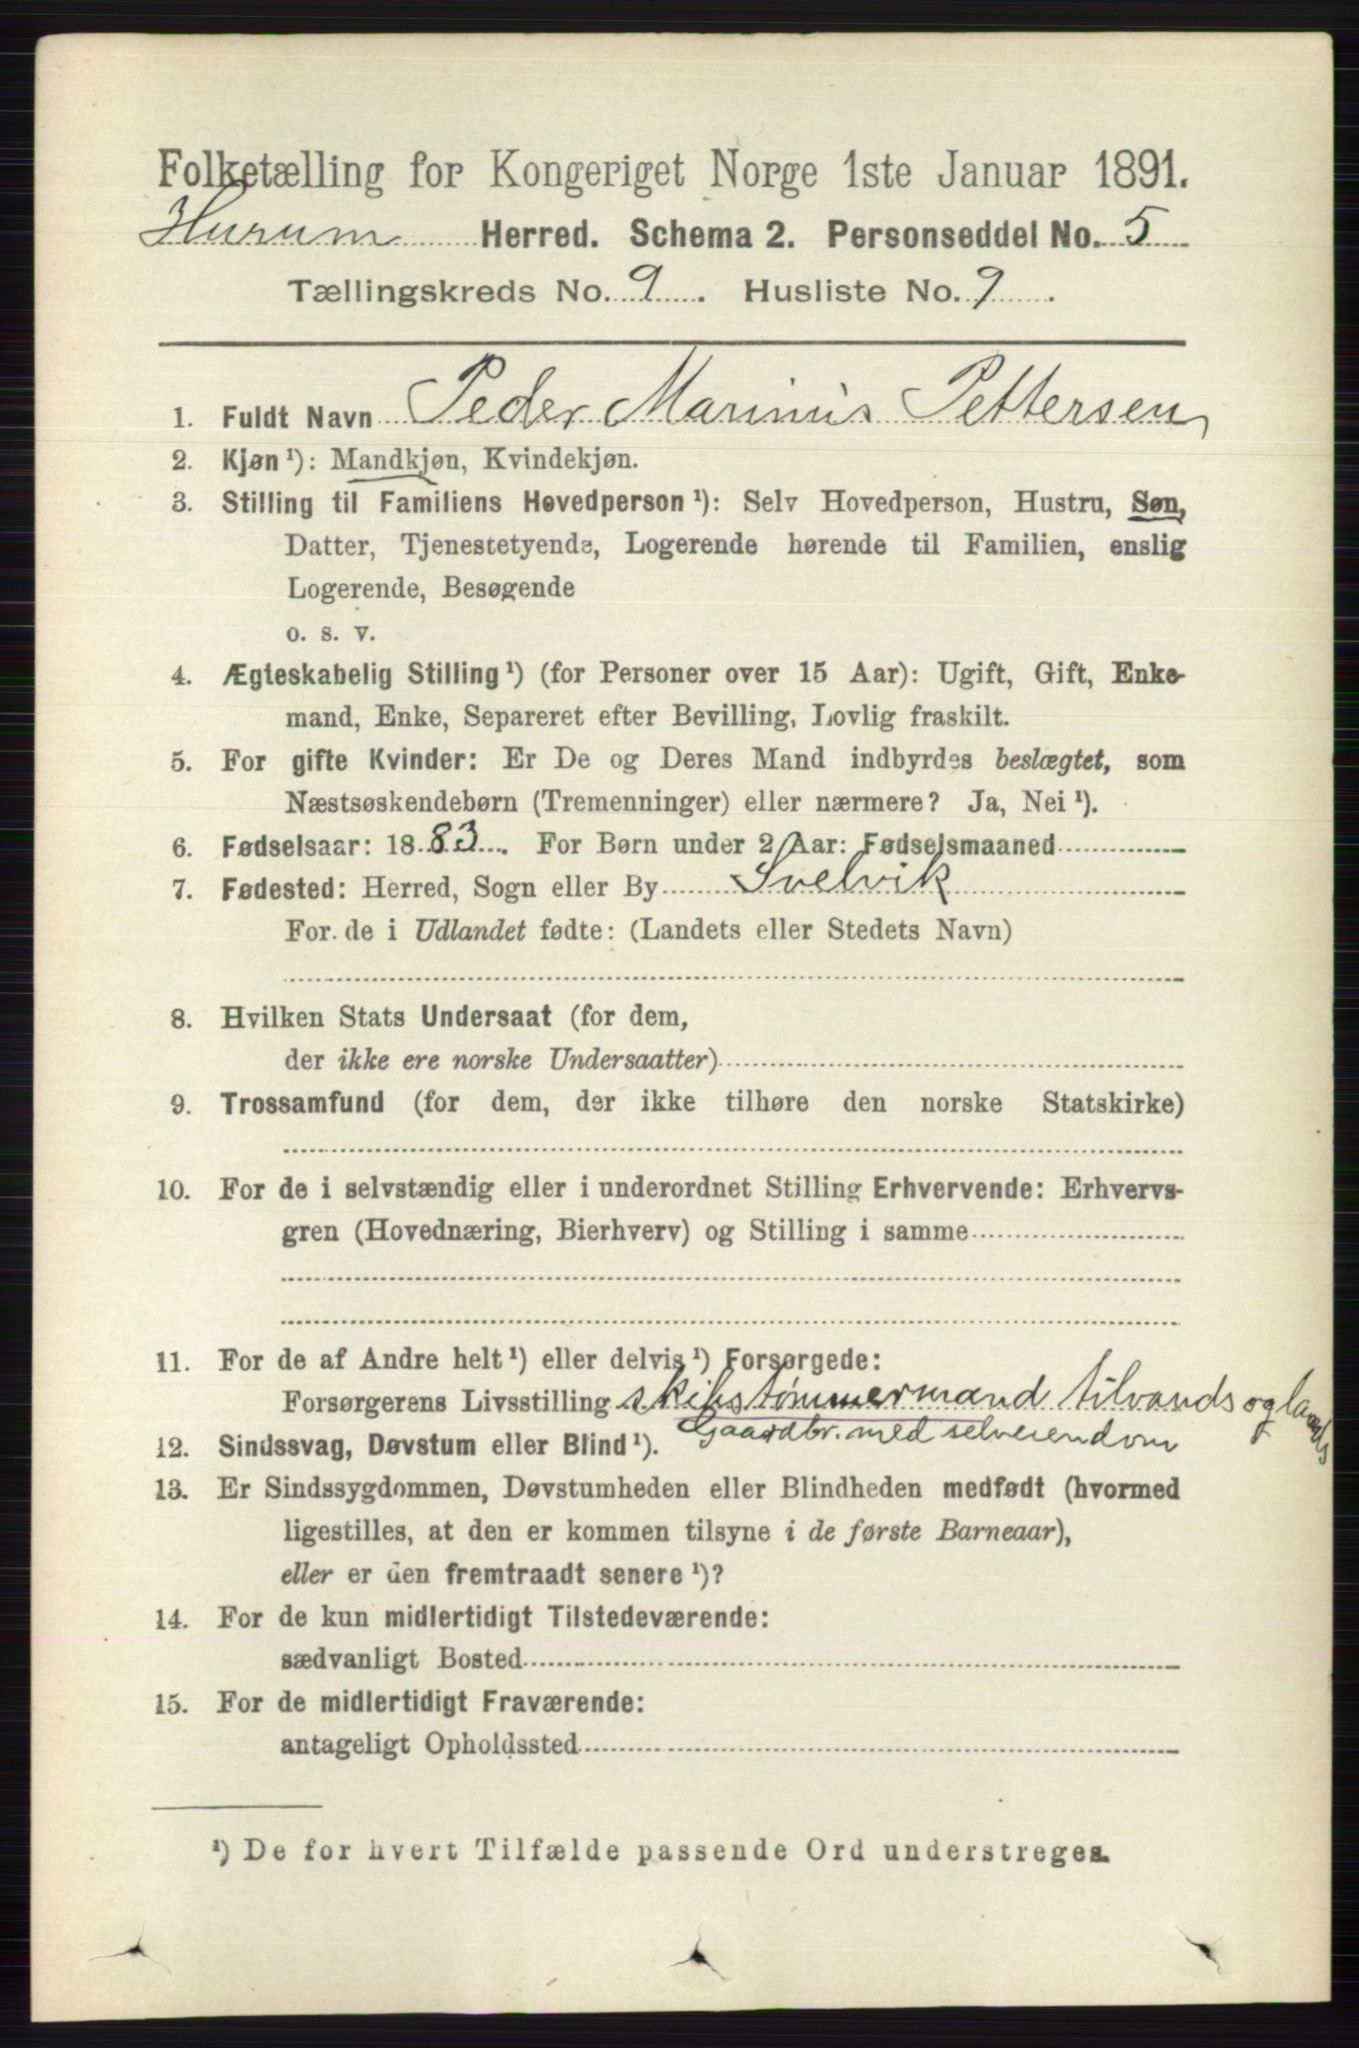 Folketælling for Kongeriget Norge 1ste Januar 1891.
Hurum Herred. Schema 2. Personseddel No. 5
Tællingskreds No. 9. Husliste No. 9.
1. Fuldt Navn Peder Marinius Pettersen,
2. Kjøn ¹): Mandkjøn, Kvindekjøn.
3. Stilling til Familiens Hovedperson ¹): Selv Hovedperson, Hustru, Søn,
Datter, Tjenestetyende, Logerende hørende til Familien, enslig
Logerende, Besøgende
o. s. v.
4. Ægteskabelig Stilling ¹) (for Personer over 15 Aar): Ugift, Gift, Enke-
mand, Enke, Separeret efter Bevilling, Lovlig fraskilt.
5. For gifte Kvinder: Er De og Deres Mand indbyrdes beslægtet, som
Næstsøskendebørn (Tremenninger) eller nærmere? Ja, Nei ¹).
6. Fødselsaar: 1883. For Børn under 2 Aar: Fødselsmaaned
7. Fødested: Herred, Sogn eller By Svelvik
For de i Udlandet fødte: (Landets eller Stedets Navn)
8. Hvilken Stats Undersaat (for dem,
der ikke ere norske Undersaatter)
9. Trossamfund (for dem, der ikke tilhøre den norske Statskirke)
10. For de i selvstændig eller i underordnet Stilling Erhvervende: Erhvervs-
gren (Hovednæring, Bierhverv) og Stilling i samme
11. For de af Andre helt ¹) eller delvis ¹) Forsørgede:
Forsørgerens Livsstilling skibstømmermand tilvands og lands
Gaardbr. med selveiendom
12. Sindssvag, Døvstum eller Blind ¹).
13. Er Sindssygdommen, Døvstumheden eller Blindheden medfødt (hvormed
ligestilles, at den er kommen tilsyne i de første Barneaar),
eller er den fremtraadt senere ¹)?
14. For de kun midlertidigt Tilstedeværende:
sædvanligt Bosted
15. For de midlertidigt Fraværende:
antageligt Opholdssted
¹) De for hvert Tilfælde passende Ord understreges.